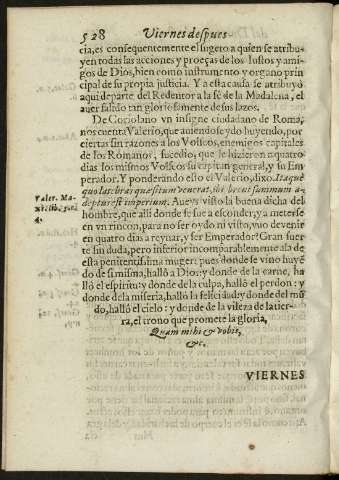 528 Viernes despues
cia, es consequentemente el sugeto a quien se atribu-
yen todas las acciones y proeças de los Iustos y ami-
gos de Dios, bien como instrumento y organo prin-
cipal de su propia justicia. Y a esta causa se atribuyò
aqui de parte del Redentor a la fè de la Madalena, el
auer salido tan gloriosamente de sus lazos.
De Coriolano vn insigne ciudadano de Roma,
nos cuenta Valerio, que auiendose ydo huyendo, por
ciertas sin razones a los Volscos, enemigos capitales
de los Romanos, sucedio, que le hizieron a quatro
dias los mismos Volscos su capitan general, y su Em
perador. Y ponderando esto el Valerio, dixo. Itaque
quo latebras quæsitum venerat, ibi breui summum a-
deptus est imperium. Aueys visto la buena dicha del
hombre, que alli donde se fue a esconder, y a meterse
en vn rincon, para no ser oydo ni visto, vino devenir
en quatro dias a reynar, y ser Emperador? Gran suer-
te sin duda, pero inferior incomparablemente a la de
esta penitentissima muger: pues donde se vino huyē
do de si misma, hallò a Dios: y donde de la carne, ha
llò el espiritu: y donde de la culpa, hallò el perdon: y
donde de la miseria, hallò la felicidad: y donde del mū
do, hallò el cielo: y donde de la vileza de la tier-
ra, el trono que promete la gloria,
Quam mihi & vobis,
&c.
Valer. Ma-
4.
VIERNES